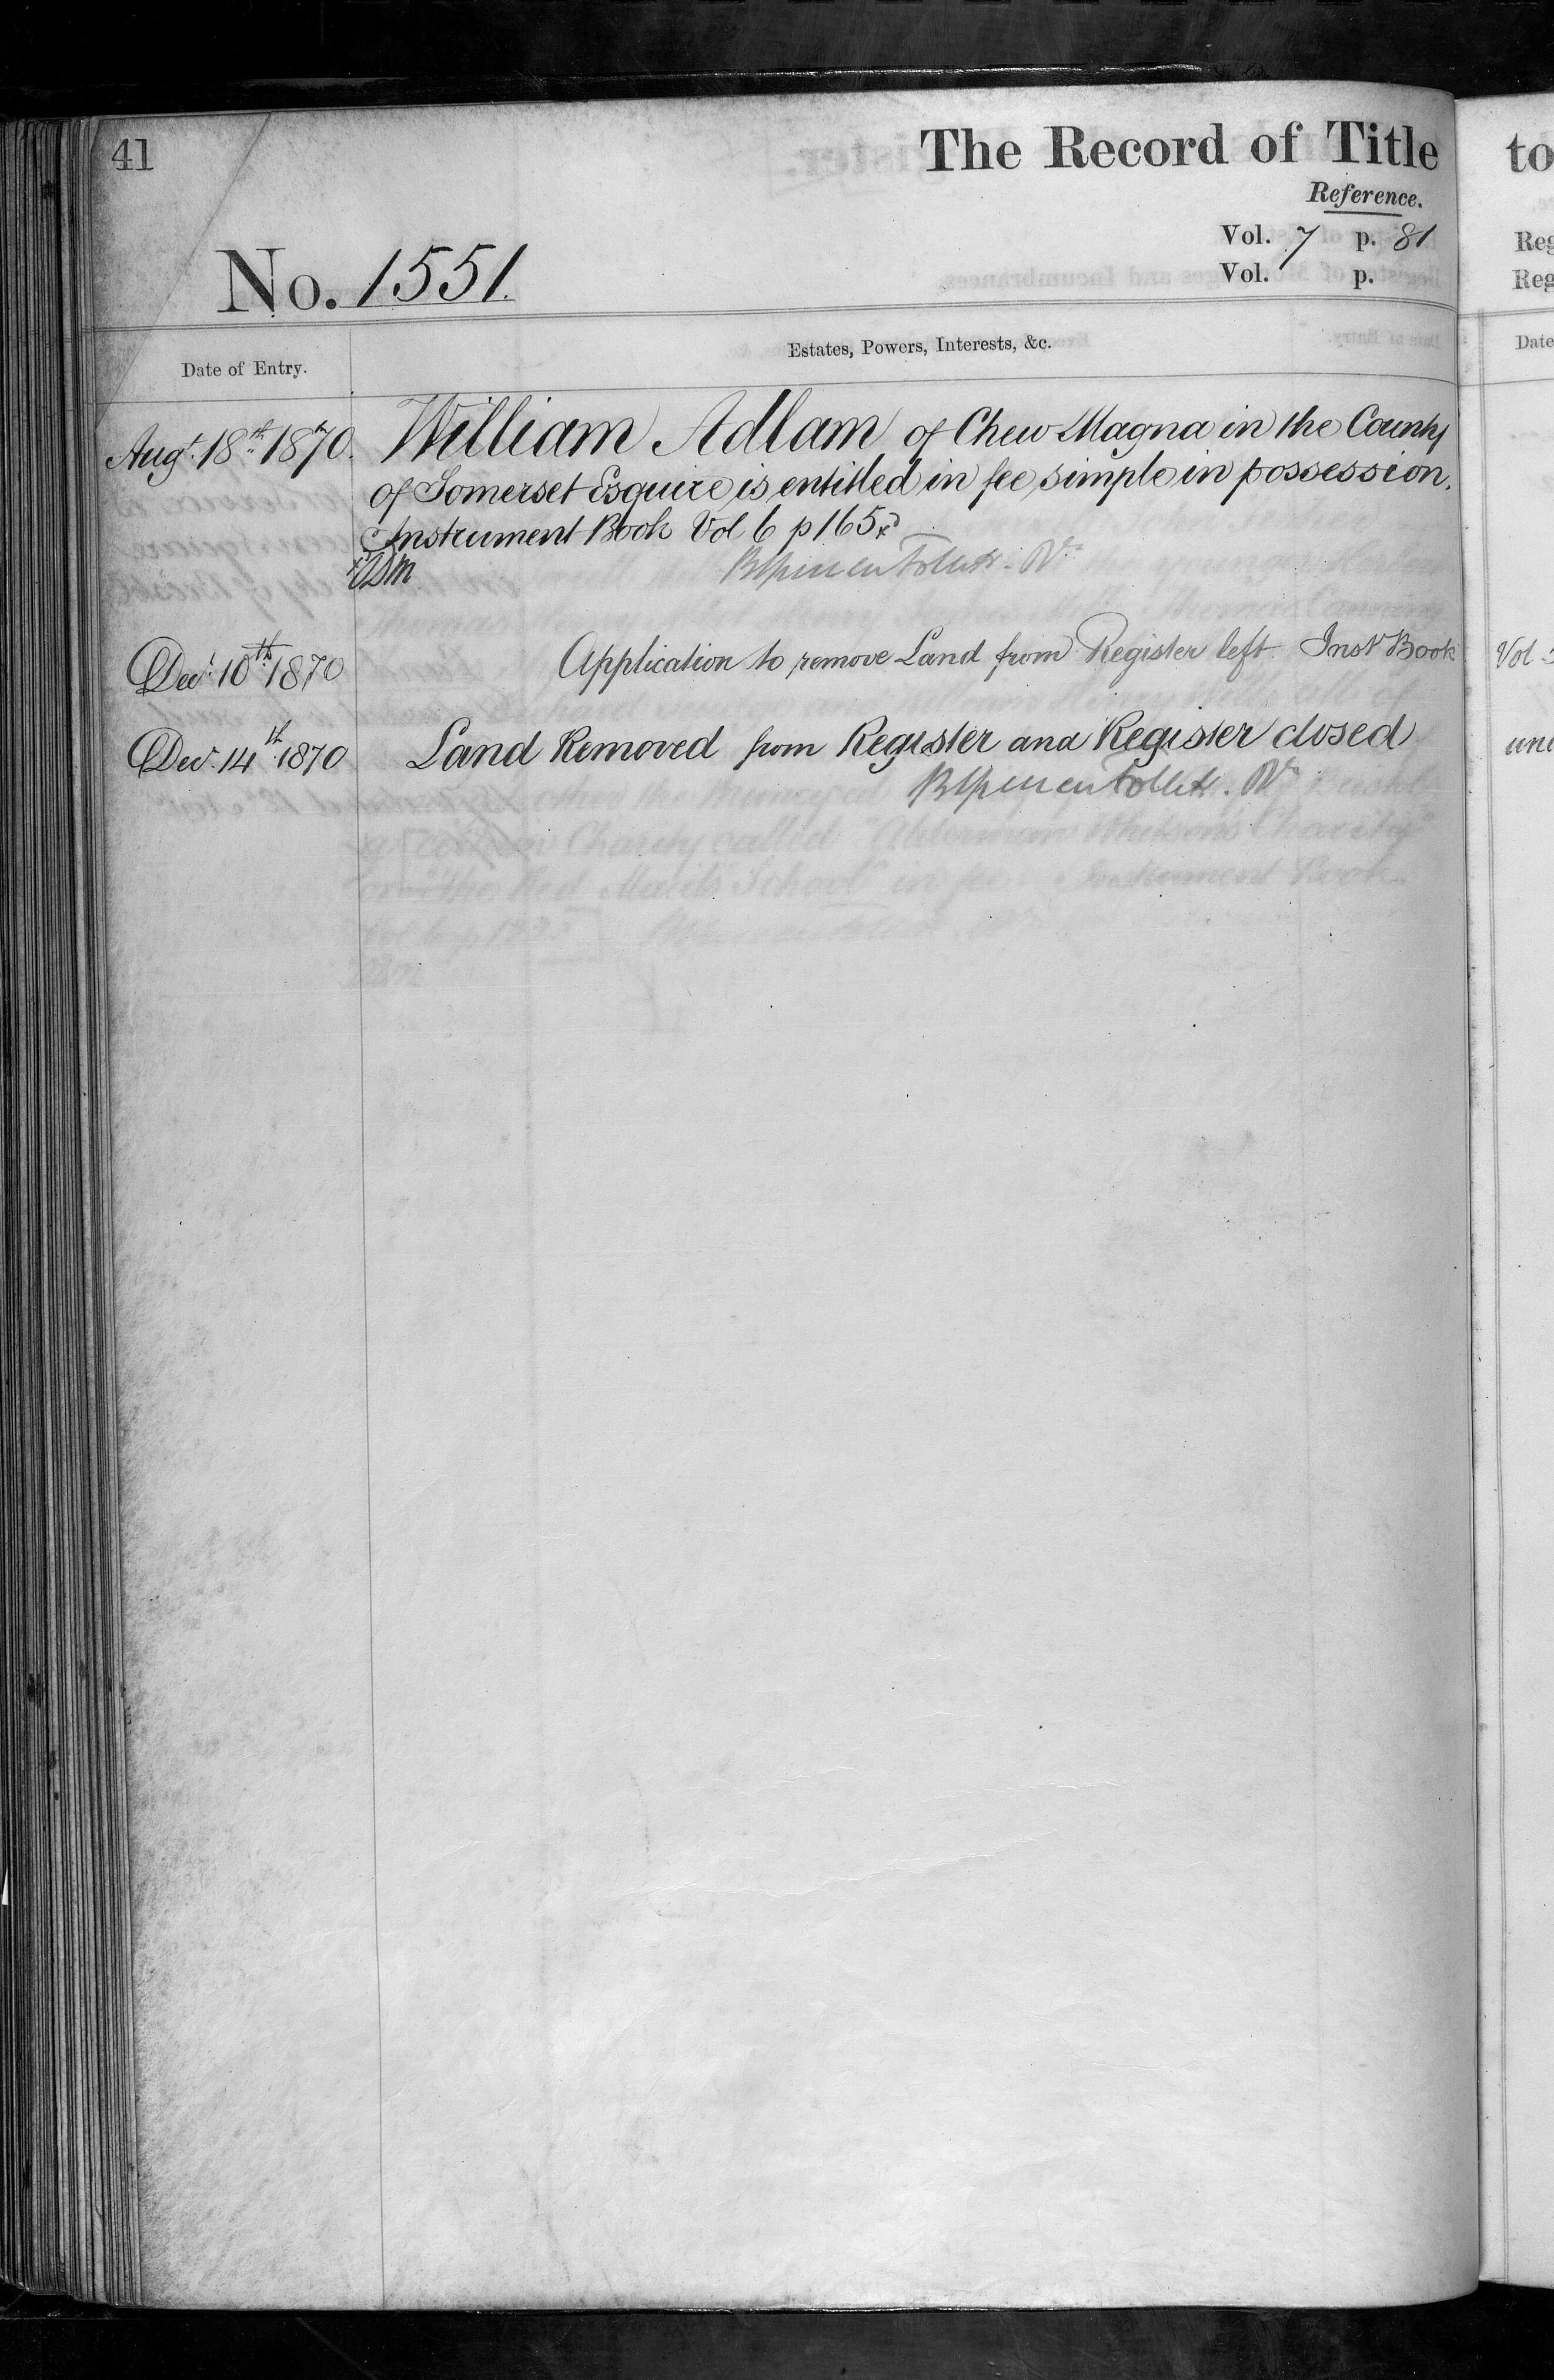 41
The Record of Title
Reference.
Vol. 7 p. 81
Vol. p.
No. 1551.
Date of Entry.
Estates, Powers, Interests, &c.
Augt. 18th 1870. William Adlam of Chew Magna in the County
of Somerset Esquire is entitled in fee simple in possession.
Instrument Book Vol 6 p 165
Decr. 10th 1870 Application to remove Land from Register left Inst Book
Decr. 14th 1870 Land Removed from Register and Register closed
to
Reg
Reg
Date
Vol